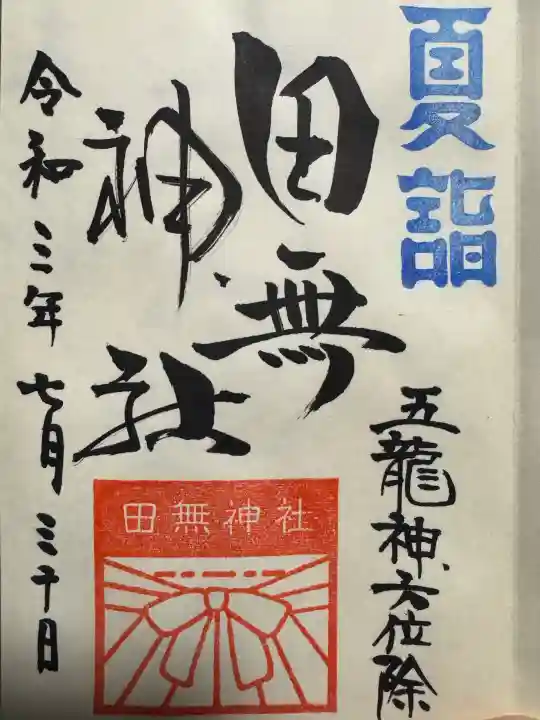 夏詣
五龍神、方位除
田無
神社
田無神社
令和三年七月三十日